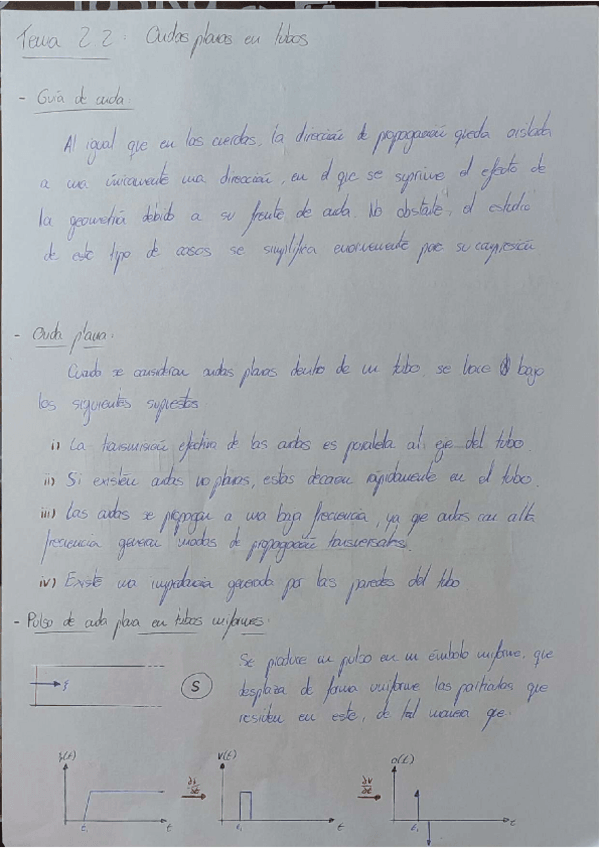 Tema 2.2: Ondas planas en tubos
- Guía de onda:
Al igual que en las cuerdas, la dirección de propagación queda aislada
a una únicamente una dirección, en el que se suprime el efecto de
la geometría debido a su frente de onda. No obstante, el estudio
de este tipo de casos se simplifica enormemente por su
- Onda plana:
Cuando se consideran ondas planas dentro de un tubo, se hace bajo
los siguientes supuestos
i) La transmisión efectiva de las ondas es paralela al eje del tubo
ii) Si existen ondas no planas, estas decaen rápidamente en el tubo.
iii) Las ondas se propagan a una baja frecuencia, ya que ondas con alta
frecuencia generan modos de propagación transversales.
iv) Existe una impedancia generada por las paredes del tubo
- Pulso de onda plana en tubos uniformes:
Se produce un pulso en un émbolo uniforme, que
desplaza de forma uniforme las partículas que
residen en este, de tal manera que:
ξ
S
ξ(t)
t₁
t
v(t)
t₁
t
∂v/∂t
a(t)
t₁
t